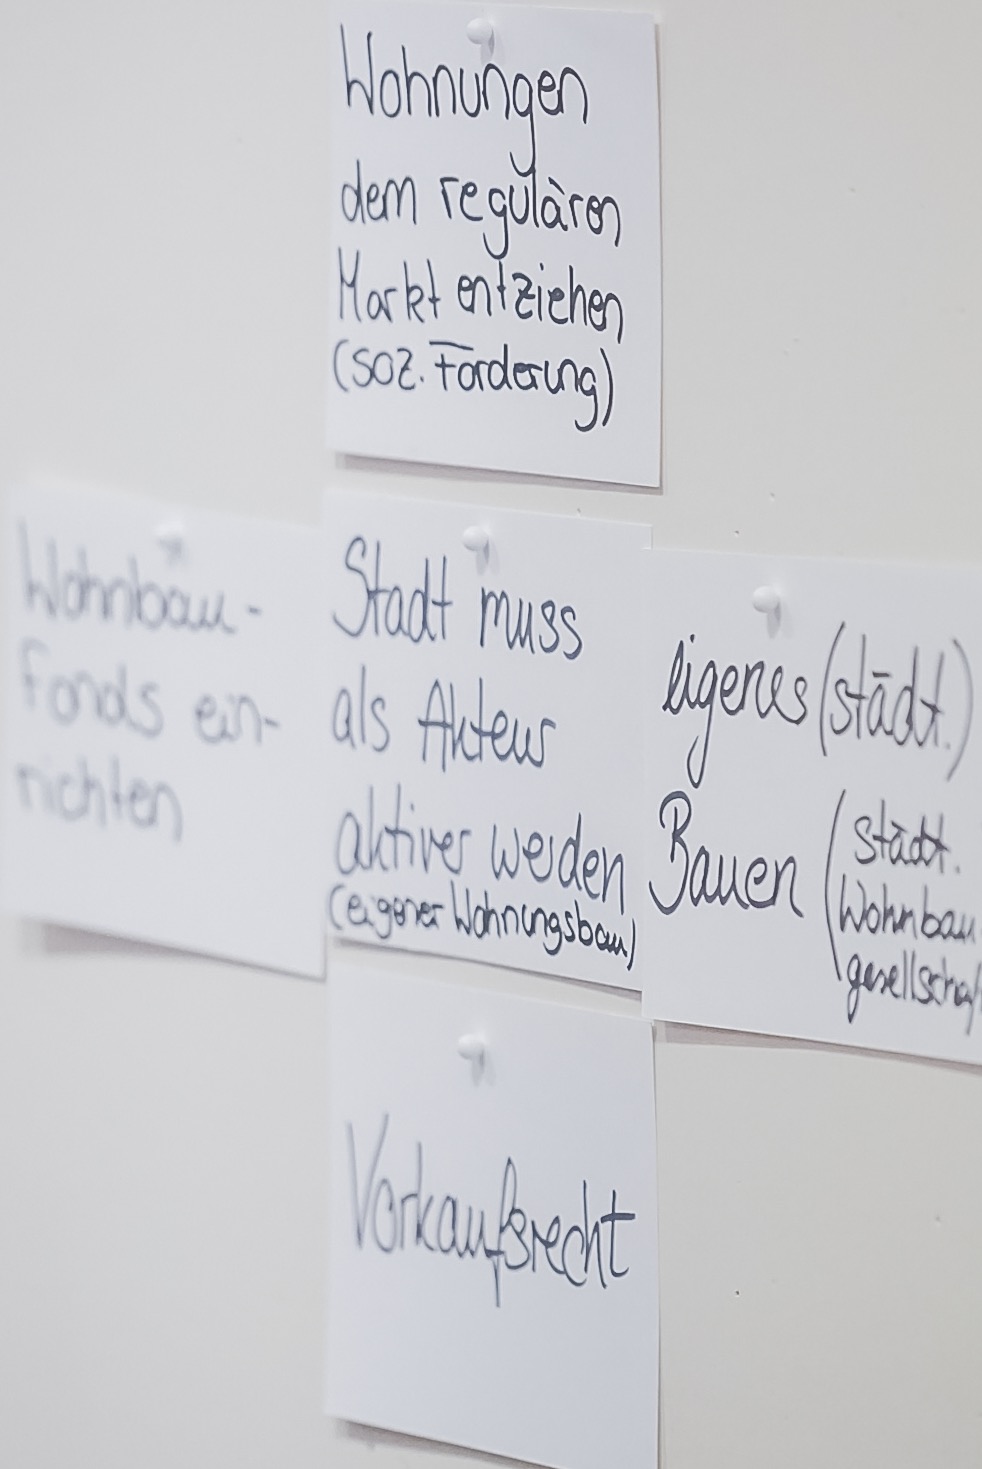 Wohnungen
dem regulären
Markt entziehen
(soz. Förderung)
Wohnbau-
Fonds ein-
richten
Stadt muss
als Akteur
aktiver werden
(eigener Wohnungsbau)
eigenes (städt.)
Bauen (städt.
Wohnbau
gesellschaf
Vorkaufsrecht